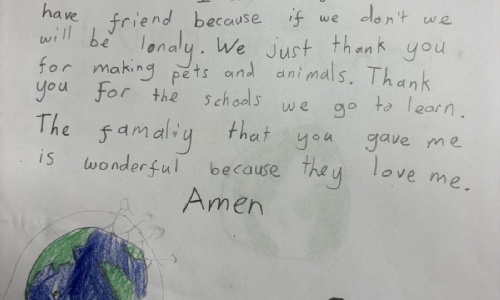 have friend because if we don't we
will be lonaly. We just thank you
for making pets and animals. Thank
you for the schools we go to learn.
The famaliy that you gave me
is wonderful because they love me.
Amen